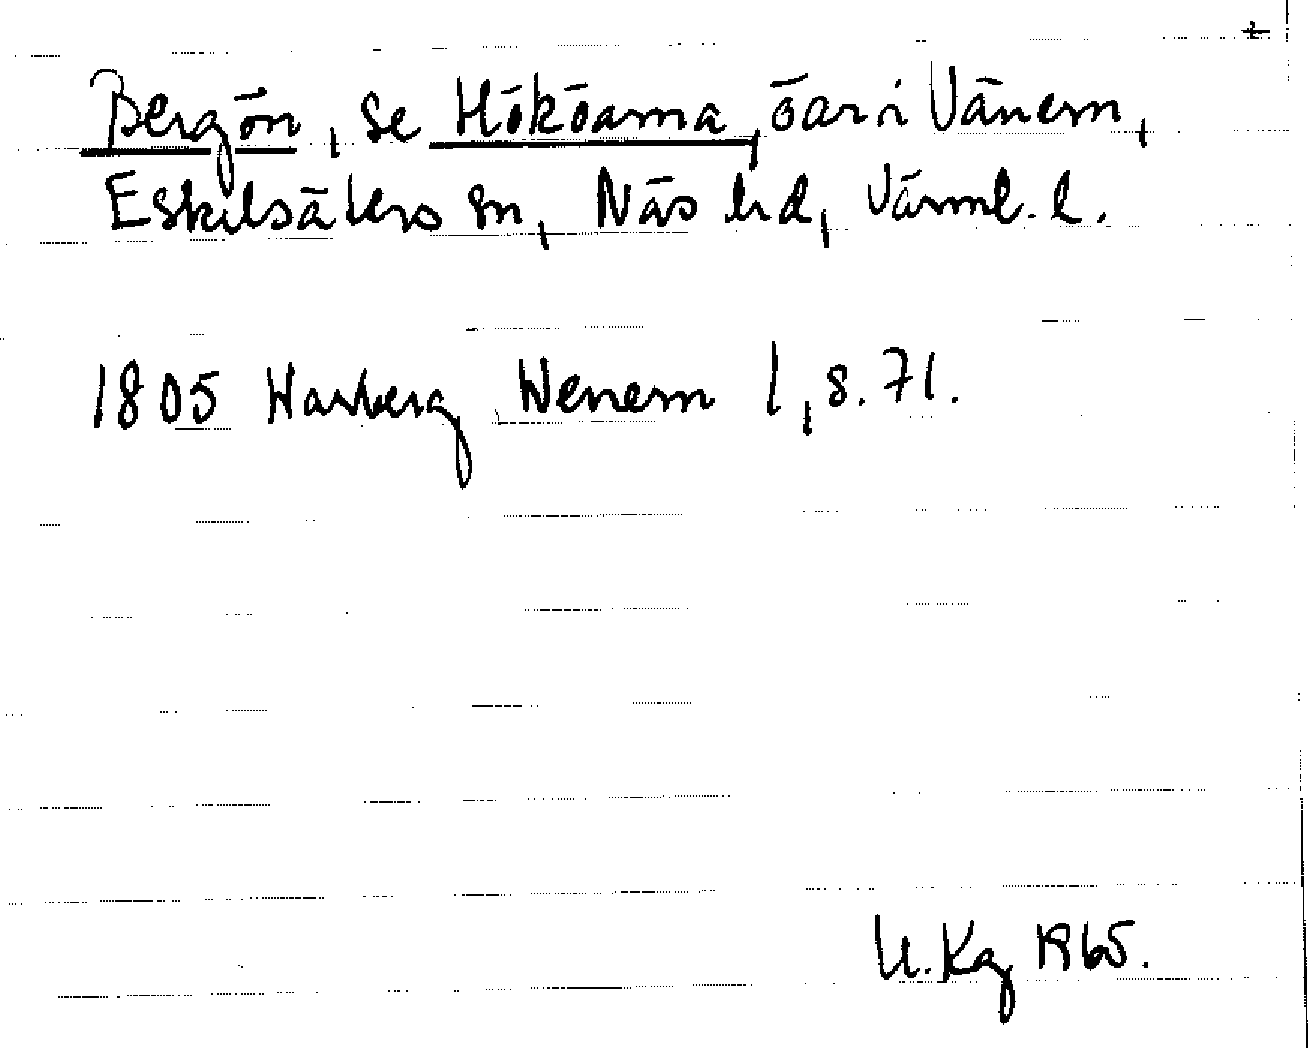 Bergön, se Hököarna, öar i Vänern,
Eskilsäters sn, Näs hd, Värml. l.
1805 Warberg Wenern 1, s. 71.
U. Kg 1965.